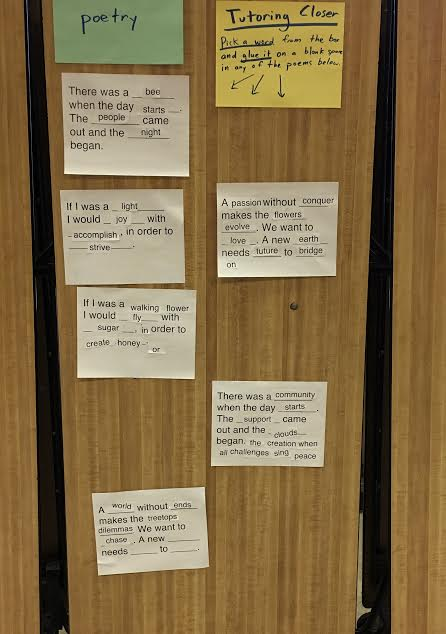 poetry
Tutoring Closer
Pick a word from the box
and glue it on a blank space
in any of the poems below.
There was a bee
when the day starts.
The people came
out and the night
began.
If I was a light
I would joy with
accomplish, in order to
strive
A passion without conquer
makes the flowers
evolve. We want to
love. A new earth
needs future to bridge
on
If I was a walking flower
I would fly with
sugar, in order to
create honey.
or
There was a community
when the day starts.
The support came
out and the clouds
began. the creation when
all challenges sing peace
A world without ends
makes the treetops
dilemmas. We want to
chase. A new ____
needs ____ to ____.